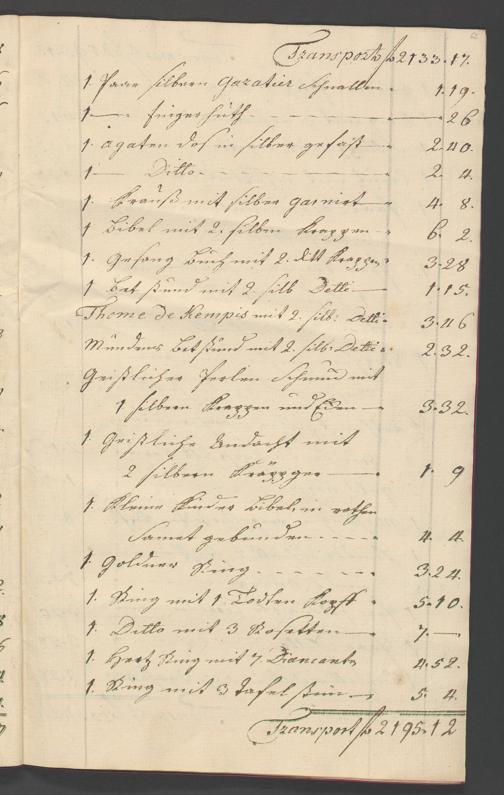 Transport f 2133.17.
1. Paar silbern Gazatier Schnallen 1.19.
1 — fingerhuth 26
1. agaten dos in silber gefast 2.40.
1 — Ditto 2. 4.
1. Krauß mit silber garnirt 4. 8.
1 Bibel mit 2. silbern Krappen 6. 2.
1. Gesang Buch mit 2. ditt Krappen 3.28
1 Bet stund mit 2 silb Detti 1.15.
Thome de Kempis mit 2. silb: Detti 3.46
Mündens Betstund mit 2. silb: Detti 2.32.
Geistlicher Perlen Schmuck mit
1 silbern Krappen und Eken 3.32.
1. Geistliche Andacht mit
2 silbern Kräppger 1. 9
1. Kleine Kinder Bibel, in rothen
Samet gebunden 4. 4.
1. Goldner Ring 3.24.
1. Ring mit 1 Todten Kopff 5.10.
1. Ditto mit 3 Rosetten 7.—
1. Hertz Ring mit 7 Diamants 4.52.
1. Ring mit 3 tafel stein 5. 4.
Transport f 2195.12